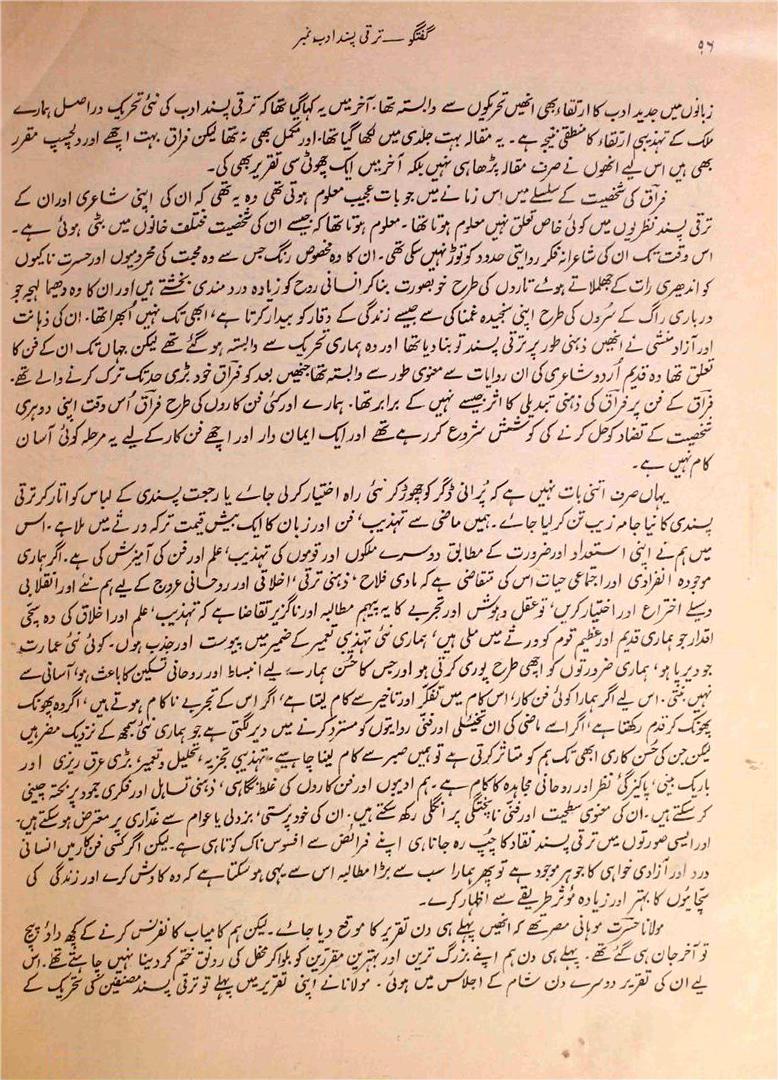 ۵۶
گفتگو — ترقی پسند ادب نمبر
زبانوں میں جدید ادب کا ارتقاء بھی انھیں تحریکوں سے وابستہ تھا۔ آخر میں یہ کہا گیا تھا کہ ترقی پسند ادب کی نئی تحریک دراصل ہمارے
ملک کے تہذیبی ارتقاء کا منطقی نتیجہ ہے۔ یہ مقالہ بہت جلدی میں لکھا گیا تھا، اور مکمل بھی نہ تھا لیکن فراق بہت اچھے اور دلچسپ مقرر
بھی ہیں اس لیے انھوں نے صرف مقالہ پڑھا ہی نہیں بلکہ آخر میں ایک چھوٹی سی تقریر بھی کی۔
فراق کی شخصیت کے سلسلے میں اس زمانے میں جو بات عجیب معلوم ہوتی تھی وہ یہ تھی کہ ان کی اپنی شاعری اور ان کے
ترقی پسند نظریوں میں کوئی خاص تعلق نہیں معلوم ہوتا تھا۔ معلوم ہوتا تھا کہ جیسے ان کی شخصیت مختلف خانوں میں بٹی ہوئی ہے۔
اس وقت تک ان کی شاعرانہ فکر روایتی حدود کو توڑ نہیں سکی تھی۔ ان کا وہ مخصوص رنگ جس سے وہ محبت کی محرومیوں اور حسرت ناکیوں
کو اندھیری رات کے جھلملاتے ہوئے تاروں کی طرح خوبصورت بنا کر انسانی روح کو زیادہ درد مندی بخشتے ہیں اور ان کا وہ دھیما لہجہ جو
درباری راگ کے سُروں کی طرح اپنی سنجیدہ غمناکی سے جیسے زندگی کے وقار کو بیدار کرتا ہے، ابھی تک نہیں اُبھرا تھا۔ ان کی ذہانت
اور آزاد منشی نے انھیں ذہنی طور پر ترقی پسند تو بنا دیا تھا اور وہ ہماری تحریک سے وابستہ ہو گئے تھے لیکن جہاں تک ان کے فن کا
تعلق تھا وہ قدیم اُردو شاعری کی ان روایات سے معنوی طور سے وابستہ تھا جنھیں بعد کو فراق خود بڑی حد تک ترک کرنے والے تھے۔
فراق کے فن پر فراق کی ذہنی تبدیلی کا اثر جیسے نہیں کے برابر تھا۔ ہمارے اور کئی فن کاروں کی طرح فراق اُس وقت اپنی دوہری
شخصیت کے تضاد کو حل کرنے کی کوشش شروع کر رہے تھے اور ایک ایمان دار اور اچھے فن کار کے لیے یہ مرحلہ کوئی آسان
کام نہیں ہے۔
یہاں صرف اتنی بات نہیں ہے کہ پُرانی ڈگر کو چھوڑ کر نئی راہ اختیار کر لی جائے یا رجعت پسندی کے لباس کو اُتار کر ترقی
پسندی کا نیا جامہ زیب تن کر لیا جائے۔ ہمیں ماضی سے تہذیب، فن اور زبان کا ایک بیش قیمت ترکہ ورثے میں ملا ہے۔ اس
میں ہم نے اپنی استعداد اور ضرورت کے مطابق دوسرے ملکوں اور قوموں کی تہذیب، علم اور فن کی آمیزش کی ہے۔ اگر ہماری
موجودہ انفرادی اور اجتماعی حیات اس کی متقاضی ہے کہ مادی فلاح، ذہنی ترقی، اخلاقی اور روحانی عروج کے لیے ہم نئے اور انقلابی
وسیلے اختراع اور اختیار کریں، تو عقل و ہوش اور تجربے کا یہ پیہم مطالبہ اور ناگزیر تقاضا ہے کہ تہذیب، علم اور اخلاق کی وہ سچی
اقدار جو ہماری قدیم اور عظیم قوم کو ورثے میں ملی ہیں، ہماری نئی تہذیبی تعمیر کے ضمیر میں پیوست اور جذب ہوں۔ کوئی نئی عمارت
جو دیرپا ہو، ہماری ضرورتوں کو اچھی طرح پوری کرتی ہو اور جس کا حُسن ہمارے لیے انبساط اور روحانی تسکین کا باعث ہو، آسانی سے
نہیں بنتی۔ اس لیے اگر ہمارا کوئی فن کار، اس کام میں تفکر اور تاخیر سے کام لیتا ہے، اگر اس کے تجربے ناکام ہوتے ہیں، اگر وہ پھونک
پھونک کر قدم رکھتا ہے، اگر اسے ماضی کی ان تخیلی اور فنی روایتوں کو مسترد کرنے میں دیر لگتی ہے جو ہماری نئی سمجھ کے نزدیک مضر ہیں
لیکن جن کی حُسن کاری ابھی تک ہم کو متاثر کرتی ہے تو ہمیں صبر سے کام لینا چاہیے۔ تہذیبی تجزیہ، تحلیل و تعمیر، بڑی عرق ریزی اور
باریک بینی، پاکیزگیٔ نظر اور روحانی مجاہدہ کا کام ہے۔ ہم ادیبوں اور فن کاروں کی غلط نگاہی، ذہنی تساہل اور فکری جمود پر نکتہ چینی
کر سکتے ہیں۔ ان کی معنوی سطحیت اور فنی ناپختگی پر انگلی رکھ سکتے ہیں۔ ان کی خود پرستی، بزدلی یا عوام سے غداری پر معترض ہو سکتے ہیں۔
اور ایسی صورتوں میں ترقی پسند نقاد کا چُپ رہ جانا ہی اپنے فرائض سے افسوس ناک کوتاہی ہے۔ لیکن اگر کسی فن کار میں انسانی
درد اور آزادی خواہی کا جوہر موجود ہے تو پھر ہمارا سب سے بڑا مطالبہ اس سے یہی ہو سکتا ہے کہ وہ کاوش کرے اور زندگی کی
سچائیوں کا بہتر اور زیادہ موثر طریقے سے اظہار کرے۔
مولانا حسرت موہانی مصر تھے کہ انھیں پہلے ہی دن تقریر کا موقع دیا جائے۔ لیکن ہم کامیاب کانفرنس کرنے کے کچھ داؤ پیچ
تو آخر جان ہی گئے تھے۔ پہلے ہی دن ہم اپنے بزرگ ترین اور بہترین مقررین کو بلوا کر محفل کی رونق ختم کر دینا نہیں چاہتے تھے۔ اس
لیے ان کی تقریر دوسرے دن شام کے اجلاس میں ہوئی۔ مولانا نے اپنی تقریر میں پہلے تو ترقی پسند مصنفین کی تحریک کے